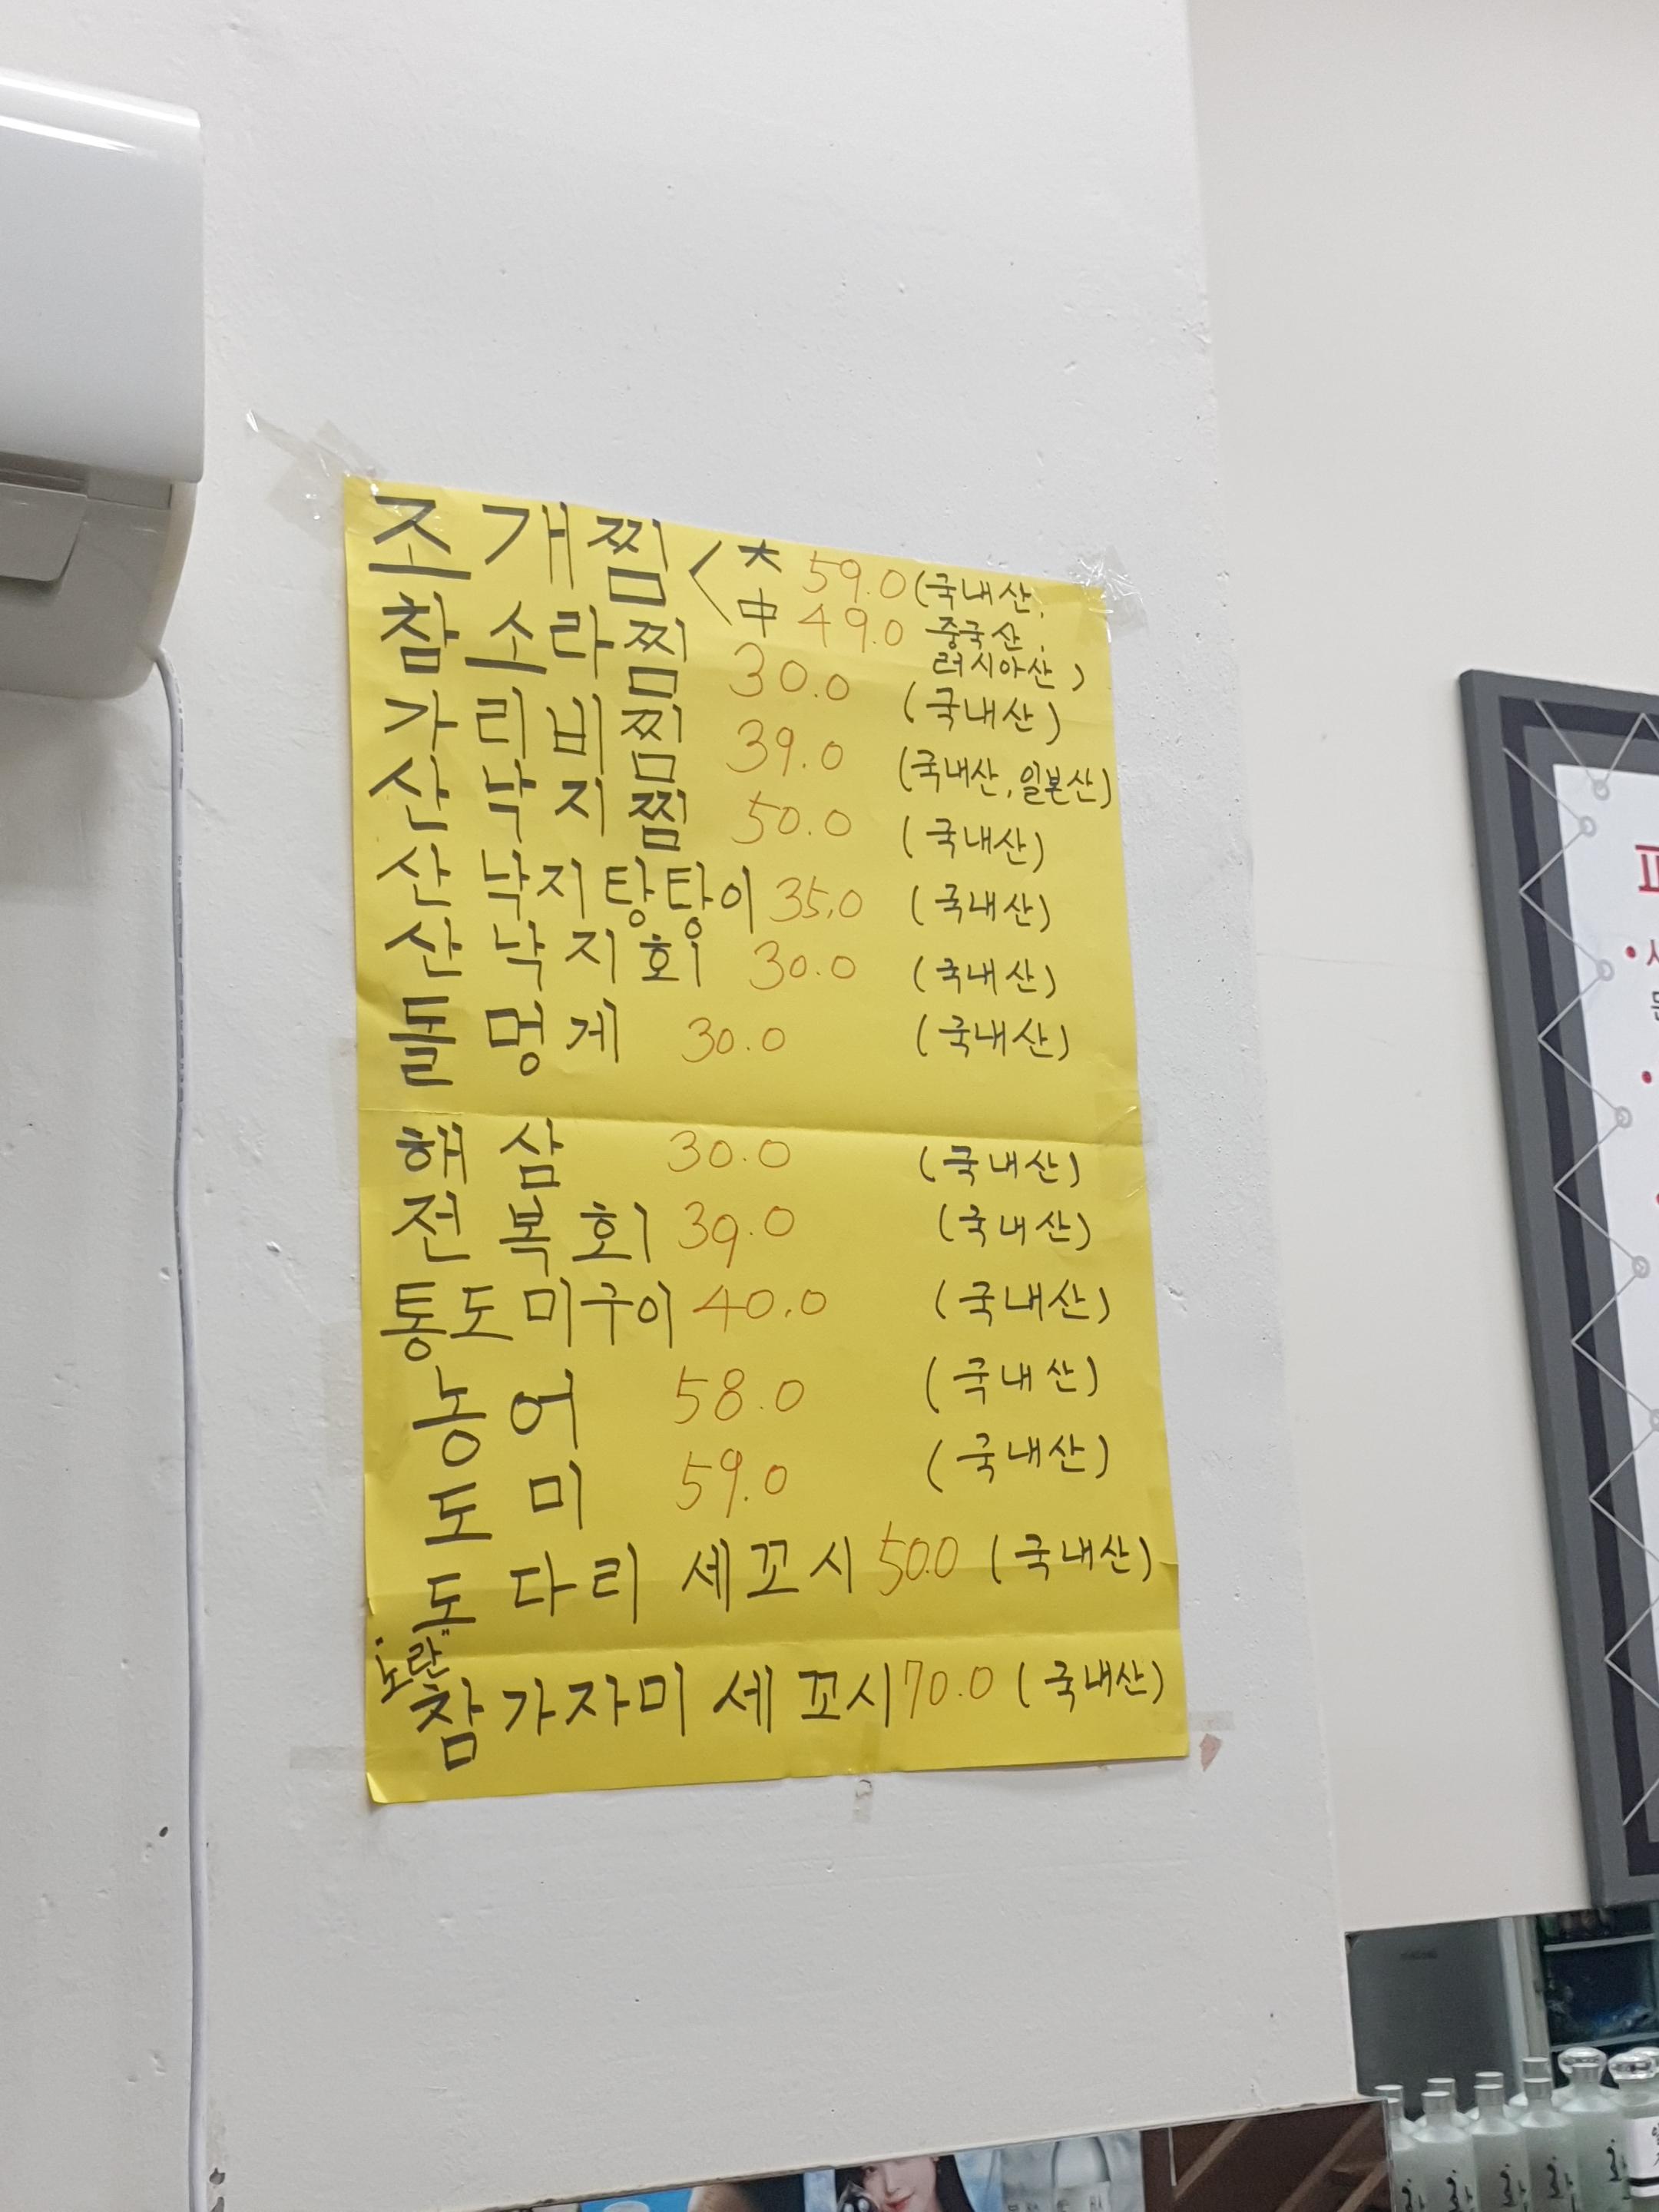 조개찜 < 大 59.0 (국내산,
中 49.0 중국산,
러시아산)
참소라찜 30.0 (국내산)
가리비찜 39.0 (국내산, 일본산)
산낙지찜 50.0 (국내산)
산낙지탕탕이 35.0 (국내산)
산낙지회 30.0 (국내산)
돌멍게 30.0 (국내산)
해삼 30.0 (국내산)
전복회 39.0 (국내산)
통도미구이 40.0 (국내산)
농어 58.0 (국내산)
도미 59.0 (국내산)
도다리 세꼬시 50.0 (국내산)
"노란"
참가자미 세꼬시 70.0 (국내산)